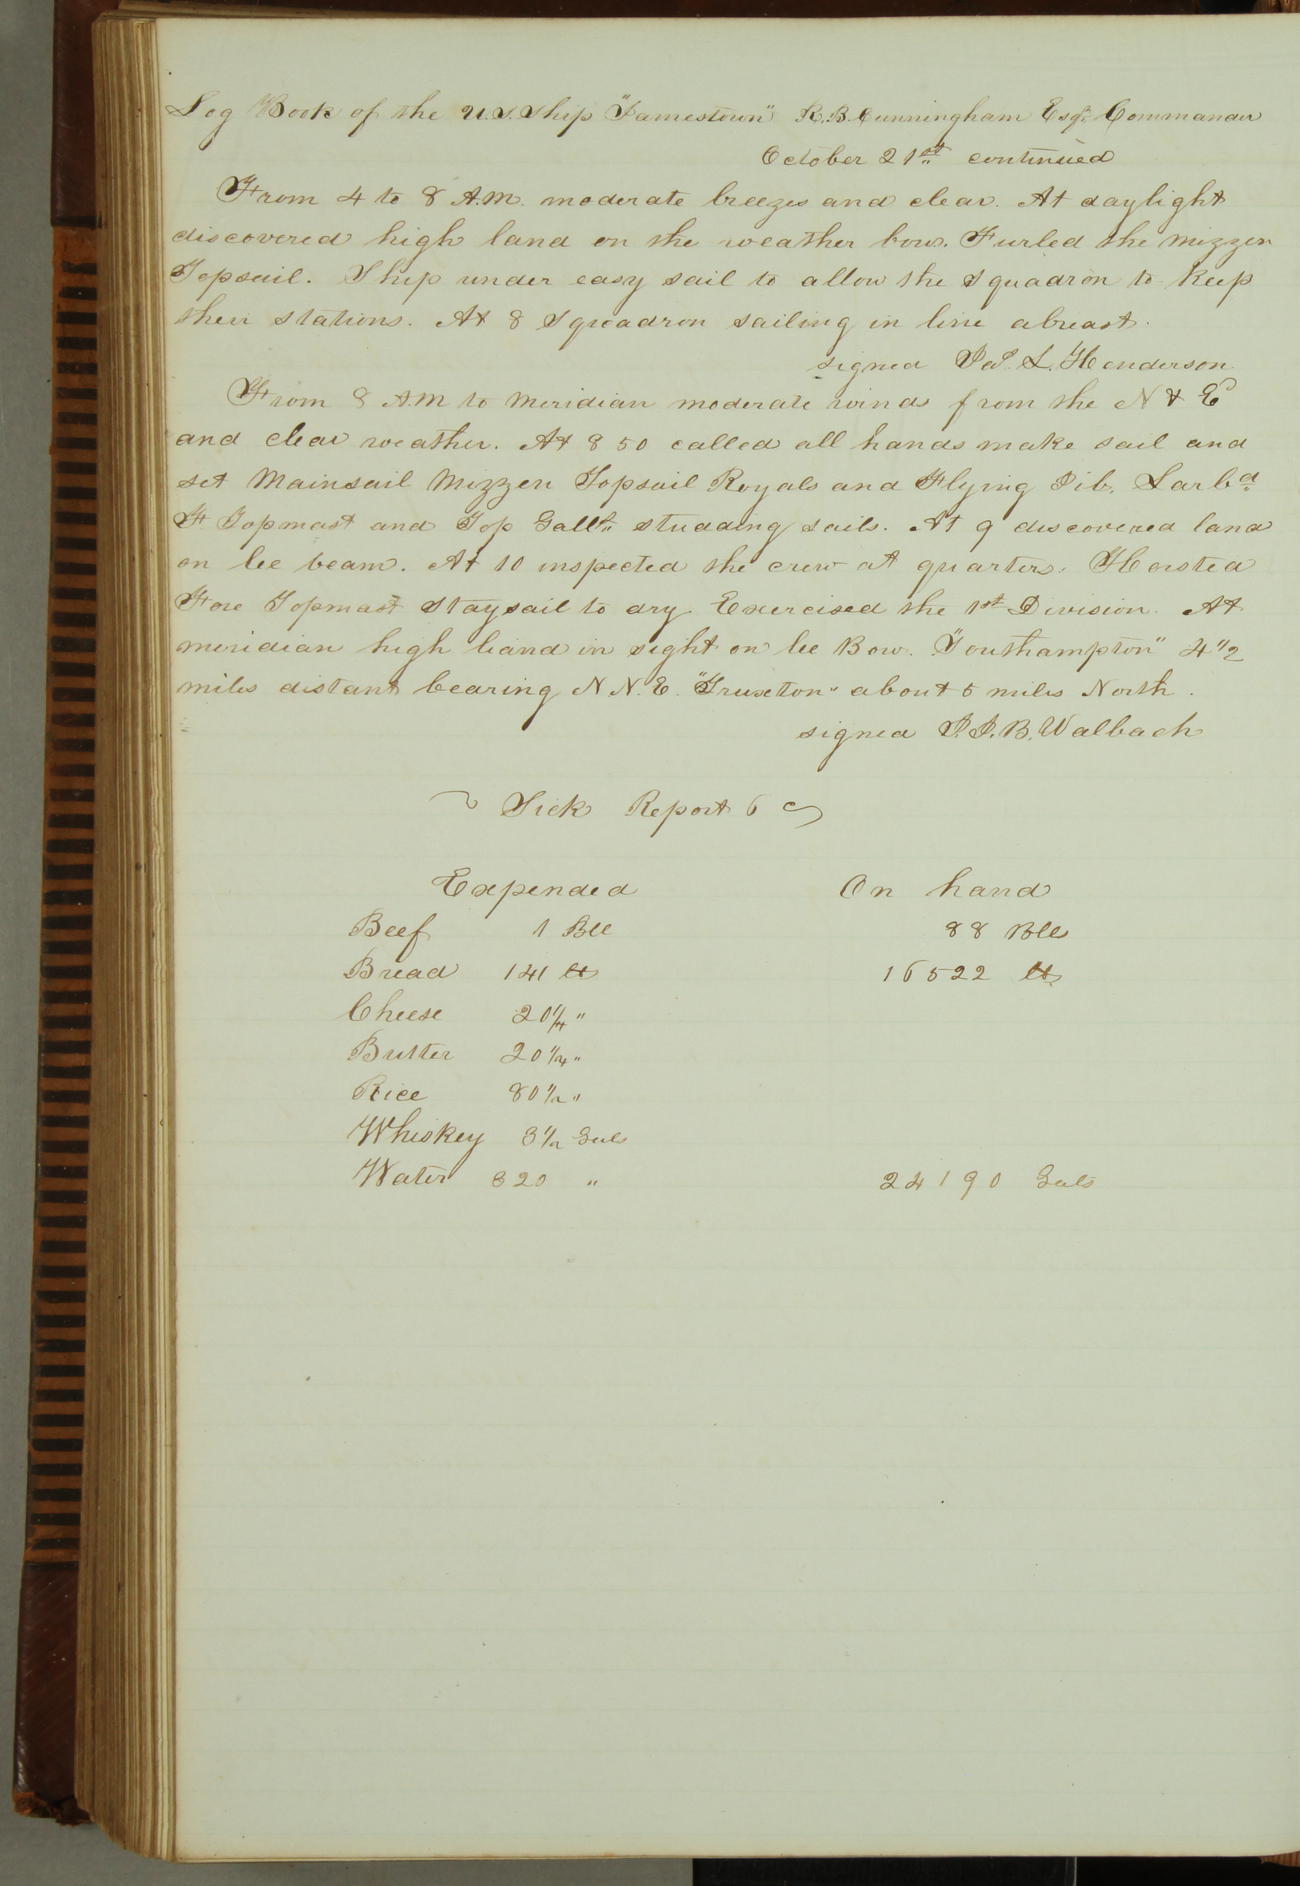 Log Book of the U.S. Ship "Jamestown" R.B. Cunningham Esqr. Commander
October 21st continued
From 4 to 8 A.M. moderate breezes and clear. At daylight
discovered high land on the weather bow. Furled the Mizzen
Topsail. Ship under easy sail to allow the Squadron to keep
their stations. At 8 Squadron sailing in line abreast.
signed Jas. L. Henderson
From 8 A.M to Meridian moderate winds from the N & E
and clear weather. At 8 50 called all hands make sail and
set Mainsail Mizzen Topsail Royals and Flying Jib, Larbd
F Topmast and Top Gallt studding sails. At 9 discovered land
on lee beam. At 10 inspected the crew at quarters. Hoisted
Fore Topmast Staysail to dry. Exercised the 1st Division. At
meridian high land in sight on lee Bow. "Southampton" 4 1/2
miles distant bearing N N. E. "Truxton" about 5 miles North.
signed J.J.B. Walbach
Sick Report 6
Expended On hand
Beef 1 Bll 88 Blls
Bread 141 lbs 16522 lbs
Cheese 20 1/4 "
Butter 20 1/4 "
Rice 80 1/2 "
Whiskey 3 1/2 Gals
Water 320 " 24190 Gals